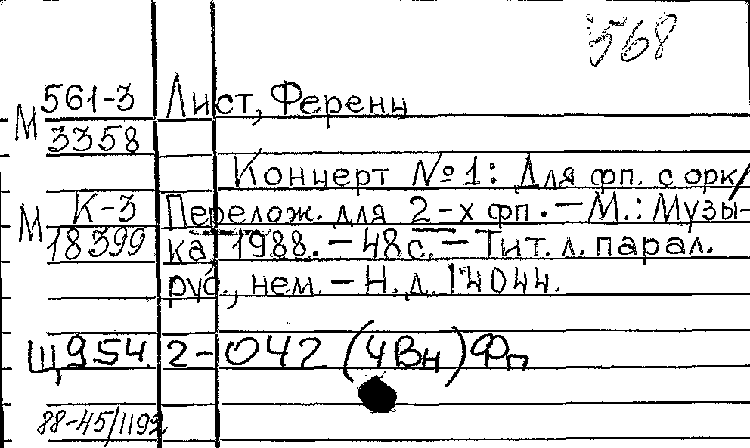 568
М 561-3
3358
Лист, Ференц
Концерт №1: Для фп. с орк/
М К-3
18399
Перелож. для 2-х фп. — М.: Музы-
ка, 1988. — 48с. — Тит. л. парал.
рус., нем. — Н. д. 14044.
Щ954.2-042 (4Вн) Фп
88-45/1192